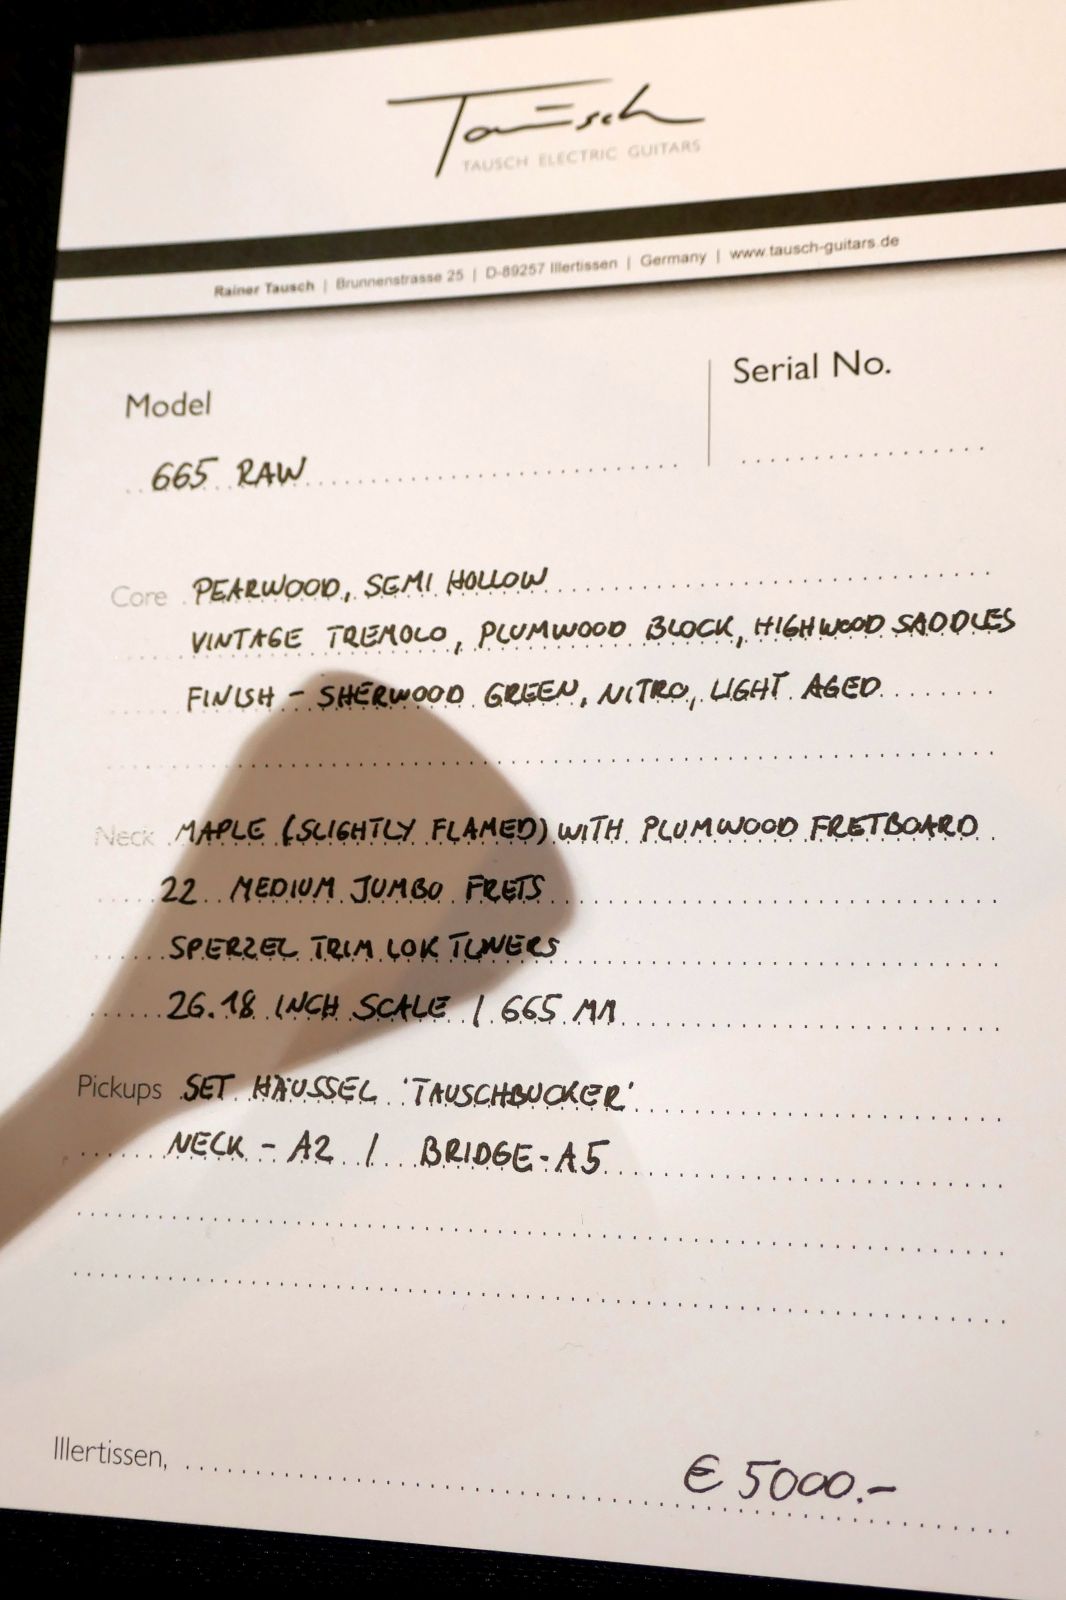 Tausch
TAUSCH ELECTRIC GUITARS
Rainer Tausch | Brunnenstrasse 25 | D-89257 Illertissen | Germany | www.tausch-guitars.de
Model
Serial No.
665 RAW
Core PEARWOOD, SEMI HOLLOW
VINTAGE TREMOLO, PLUMWOOD BLOCK, HIGHWOOD SADDLES
FINISH - SHERWOOD GREEN, NITRO, LIGHT AGED
Neck MAPLE (SLIGHTLY FLAMED) WITH PLUMWOOD FRETBOARD
22 MEDIUM JUMBO FRETS
SPERZEL TRIM LOK TUNERS
26.18 INCH SCALE / 665 MM
Pickups SET HÄUSSEL 'TAUSCHBUCKER'
NECK - A2 / BRIDGE - A5
Illertissen,
€ 5000.-